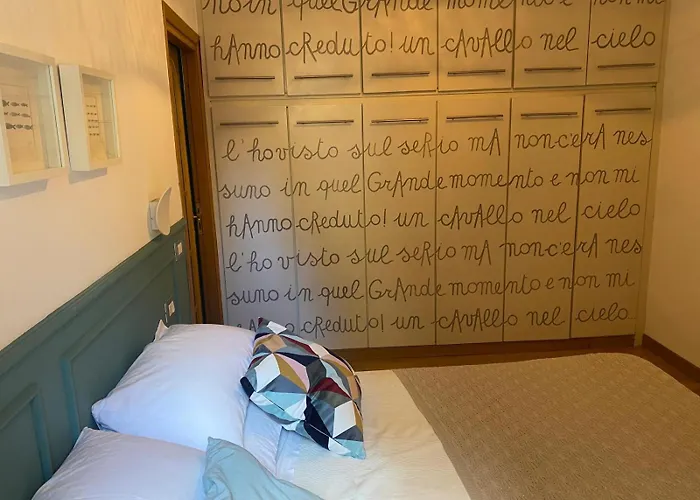 no in quel GrANde momento e non mi
hAnno cReduto! un cAvAllo nel cielo
l'ho visto sul seRio mA non c'erA nes
suno in quel GrANde momento e non mi
hAnno cReduto! un cAvAllo nel cielo
l'ho visto sul seRio mA non c'erA nes
suno in quel GrANde momento e non mi
hAnno cReduto! un cAvAllo nel cielo